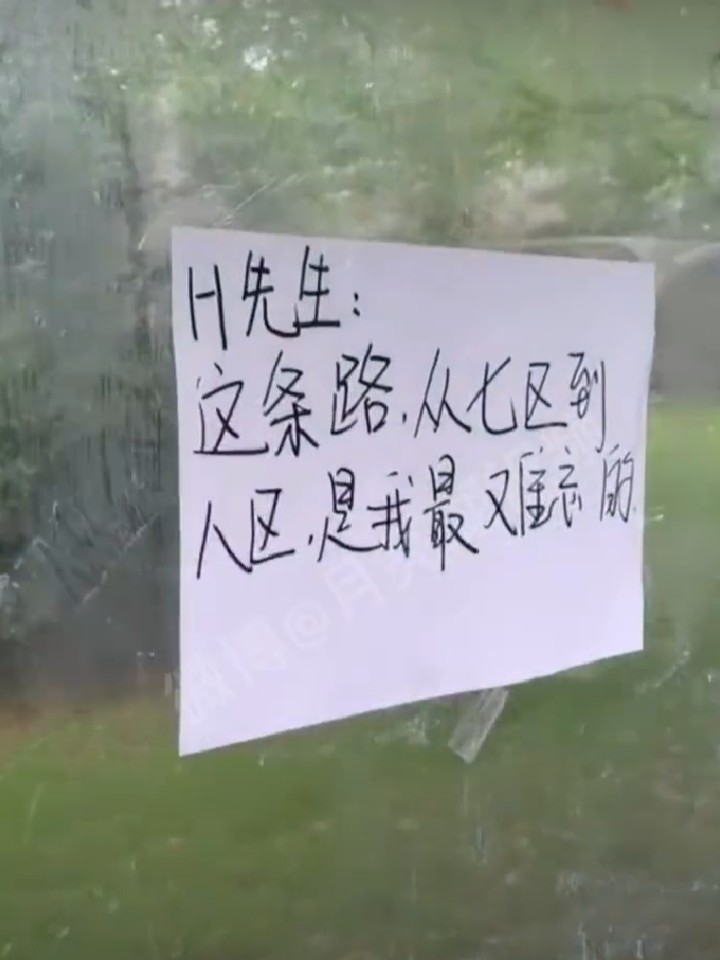 H先生:
这条路.从七区到
八区.是我最难忘的.
微博@月